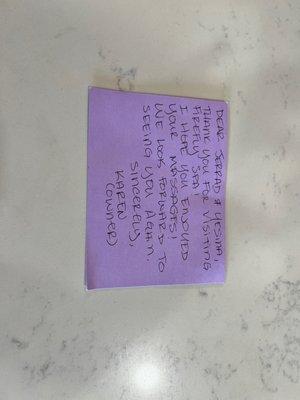 DEAR JERRAD & YESINA,
THANK YOU FOR VISITING
FIREFLY SPA
I HOPE YOU ENJOYED
YOUR MASSAGES!
WE LOOK FORWARD TO
SEEING YOU AGAIN.
SINCERELY,
KAREN
(OWNER)